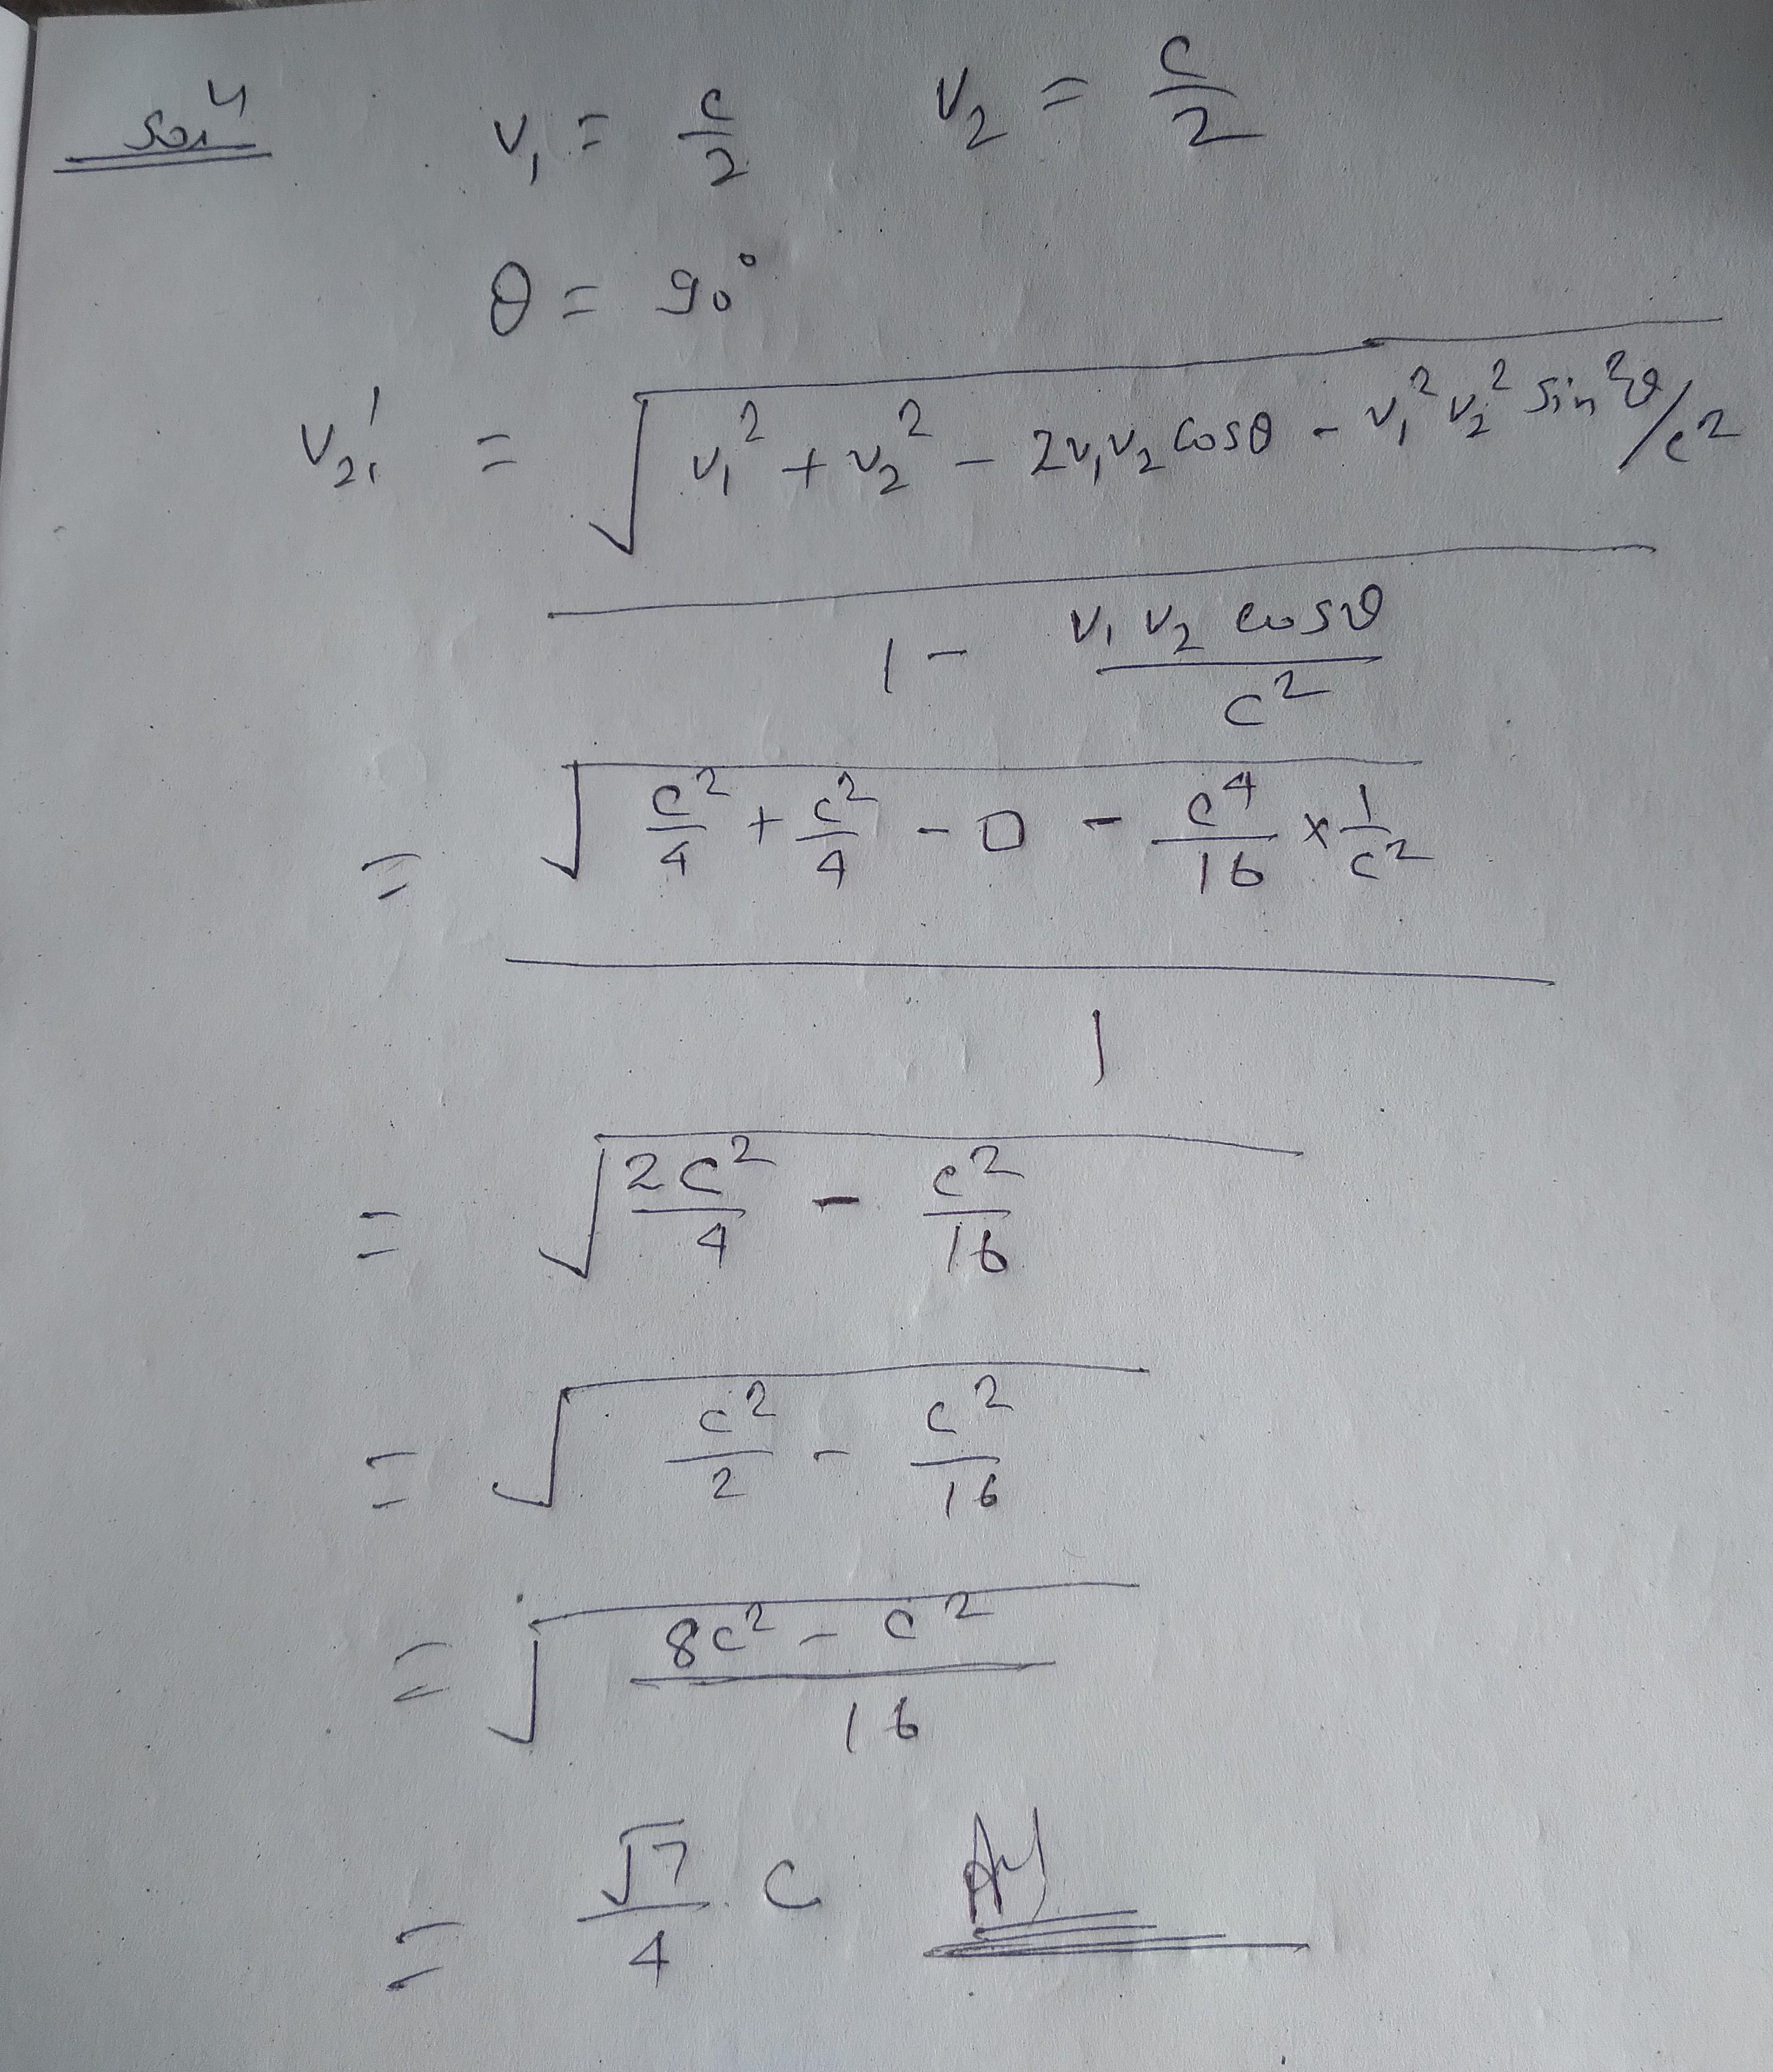 Sol^n v₁ = c/2 v₂ = c/2
θ = 90°
v₂₁' = √(v₁² + v₂² - 2v₁v₂ cosθ - v₁² v₂² sin²θ/c²)
1 - v₁ v₂ cosθ / c²
= √(c²/4 + c²/4 - 0 - c⁴/16 × 1/c²)
1
= √(2c²/4 - c²/16)
= √(c²/2 - c²/16)
= √((8c² - c²)/16)
= √7/4 . c